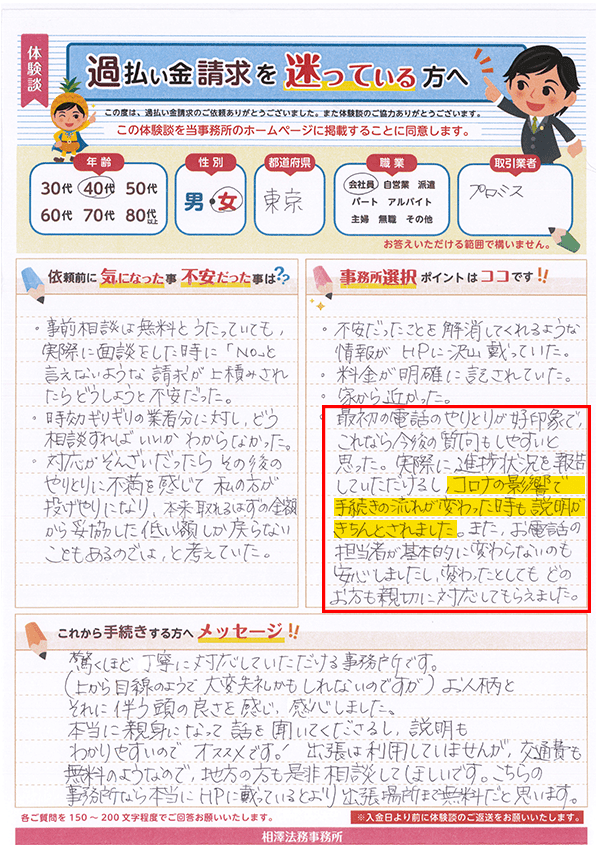 体験談
過払い金請求を迷っている方へ
この度は、過払い金請求のご依頼ありがとうございました。また体験談のご協力ありがとうございます。
この体験談を当事務所のホームページに掲載することに同意します。
年齢
30代 40代 50代
60代 70代 80代以上
性別
男・女
都道府県
東京
職業
会社員 自営業 派遣
パート アルバイト
主婦 無職 その他
取引業者
プロミス
お答えいただける範囲で構いません。
依頼前に気になった事 不安だった事は??
・事前相談は無料とうたっていても、
実際に面談をした時に「NO」と
言えないような請求が上積みされ
たらどうしようと不安だった。
・時効ギリギリの業者分に対し、どう
相談すればいいかわからなかった。
・対応がぞんざいだったら その後の
やりとりに不満を感じて 私の方が
投げやりになり、本来取れるはずの金額
から妥協した低い額しか戻らない
こともあるのでは、と考えていた。
事務所選択 ポイントはココです!!
・不安だったことを解消してくれるような
情報が HPに沢山載っていた。
・料金が明確に記されていた。
・家から近かった。
・最初の電話のやりとりが好印象で、
これなら今後の質問もしやすいと
思った。実際に進捗状況を報告
していただけるし、コロナの影響で
手続きの流れが変わった時も説明が
きちんとされました。また、お電話の
担当者が基本的に変わらないのも
安心しましたし、変わったとしても どの
お方も親切に対応してもらえました。
これから手続きする方へ メッセージ!!
驚くほど丁寧に対応していただける事務所です。
(上から目線のようで大変失礼かもしれないのですが)お人柄と
それに伴う頭の良さを感じ、感心しました。
本当に親身になって話を聞いてくださるし、説明も
わかりやすいので オススメです! 出張は利用していませんが、交通費も
無料のようなので、地方の方も是非相談してほしいです。こちらの
事務所なら本当にHPに載っているとおり出張場所まで無料だと思います。
各ご質問を150〜200文字程度でご回答お願いいたします。
※入金日より前に体験談のご返送をお願いいたします。
相澤法務事務所